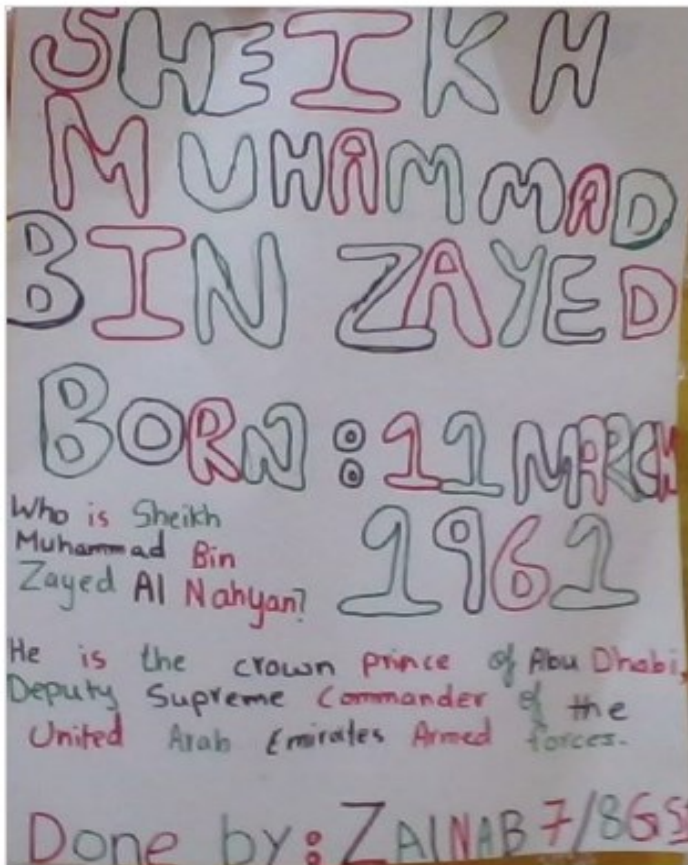 SHEIKH
MUHAMMAD
BIN ZAYED
BORN: 11 MARCH
1961
Who is Sheikh
Muhammad Bin
Zayed Al Nahyan?
He is the crown prince of Abu Dhabi,
Deputy Supreme Commander of the
United Arab Emirates Armed forces.
Done by: ZAINAB 7/8GS